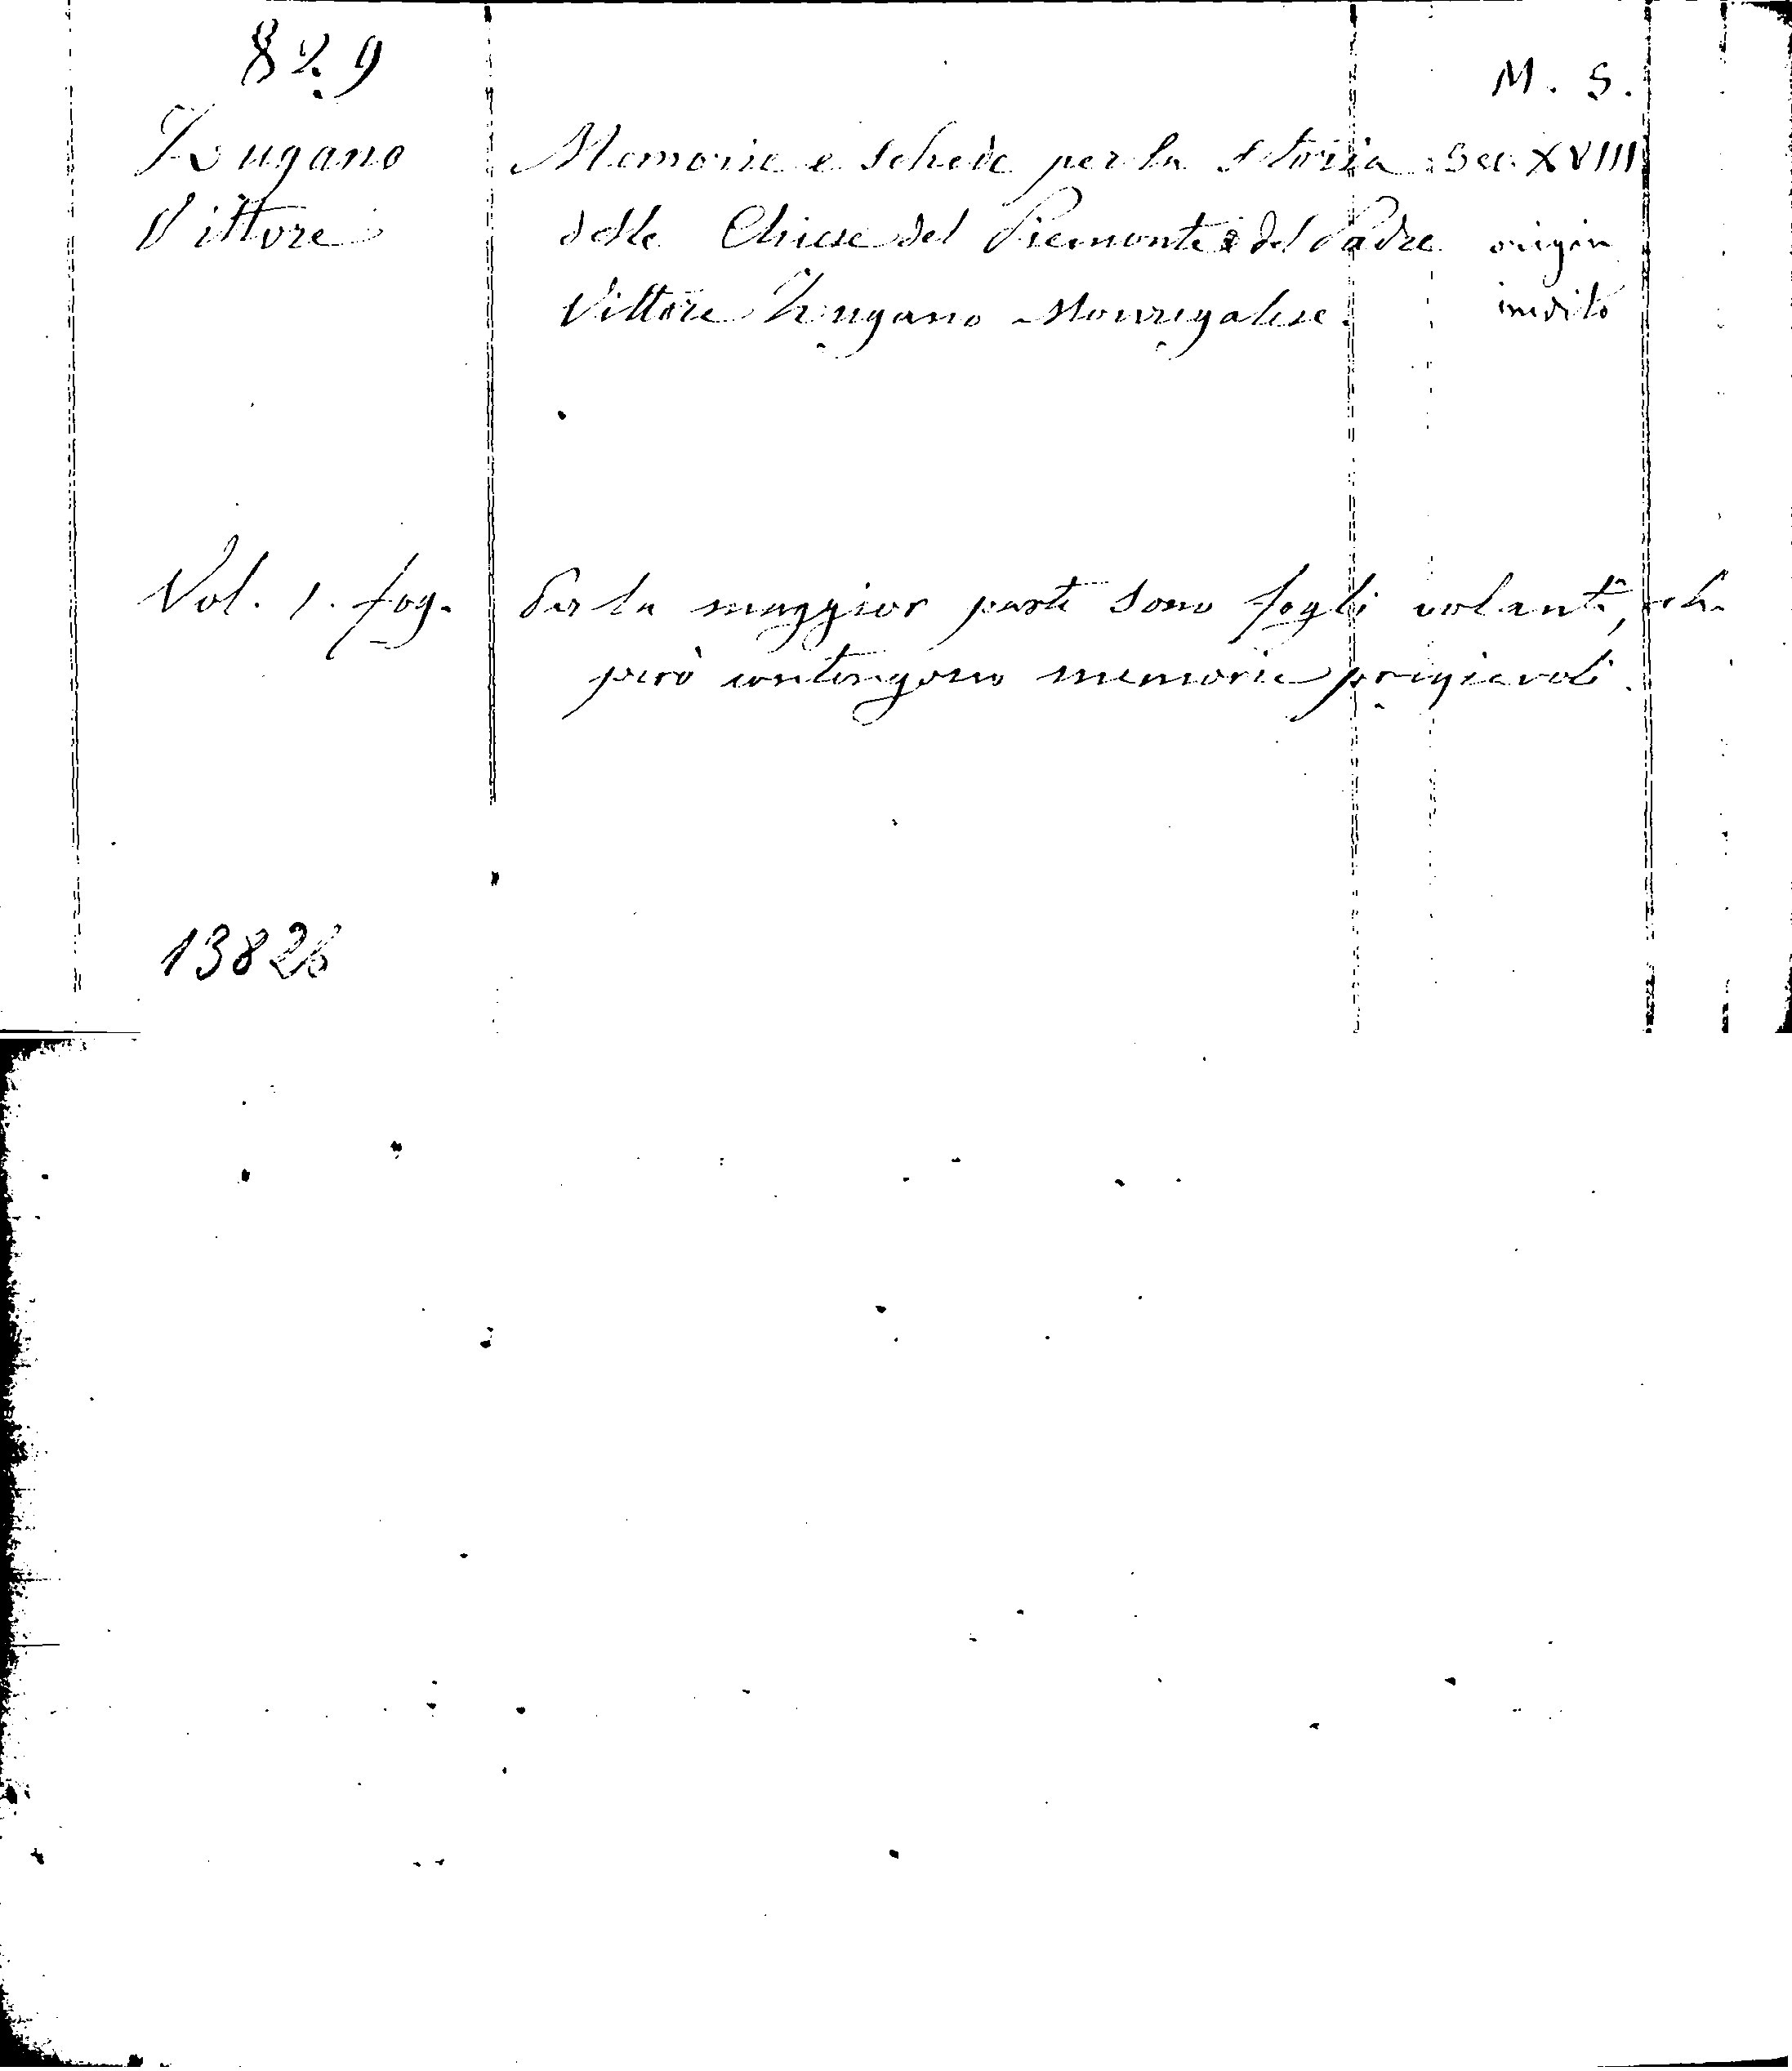 829
M. S.
Zugano Memorie e schede per la Storia Sec. XVIII
Vittore delle Chiese del Piemonte del Padre origin
Vittore Zugano Monregalese. inedito
Vol. 1. fog. Per la maggior parte sono fogli volanti, che
però contengono memorie pregievoli.
13826